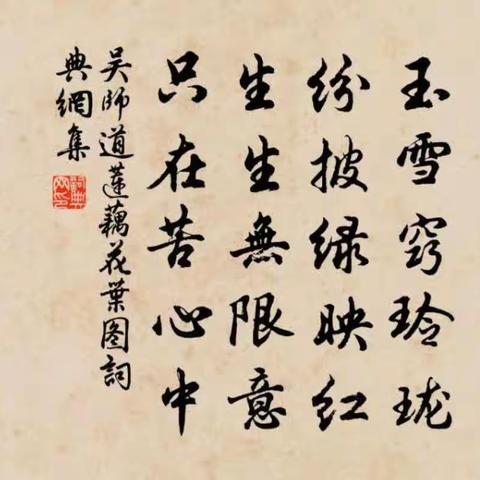 玉雪窍玲珑
纷披绿映红
生生無限意
只在苦心中
吴師道蓮藕花葉图詞
典網集